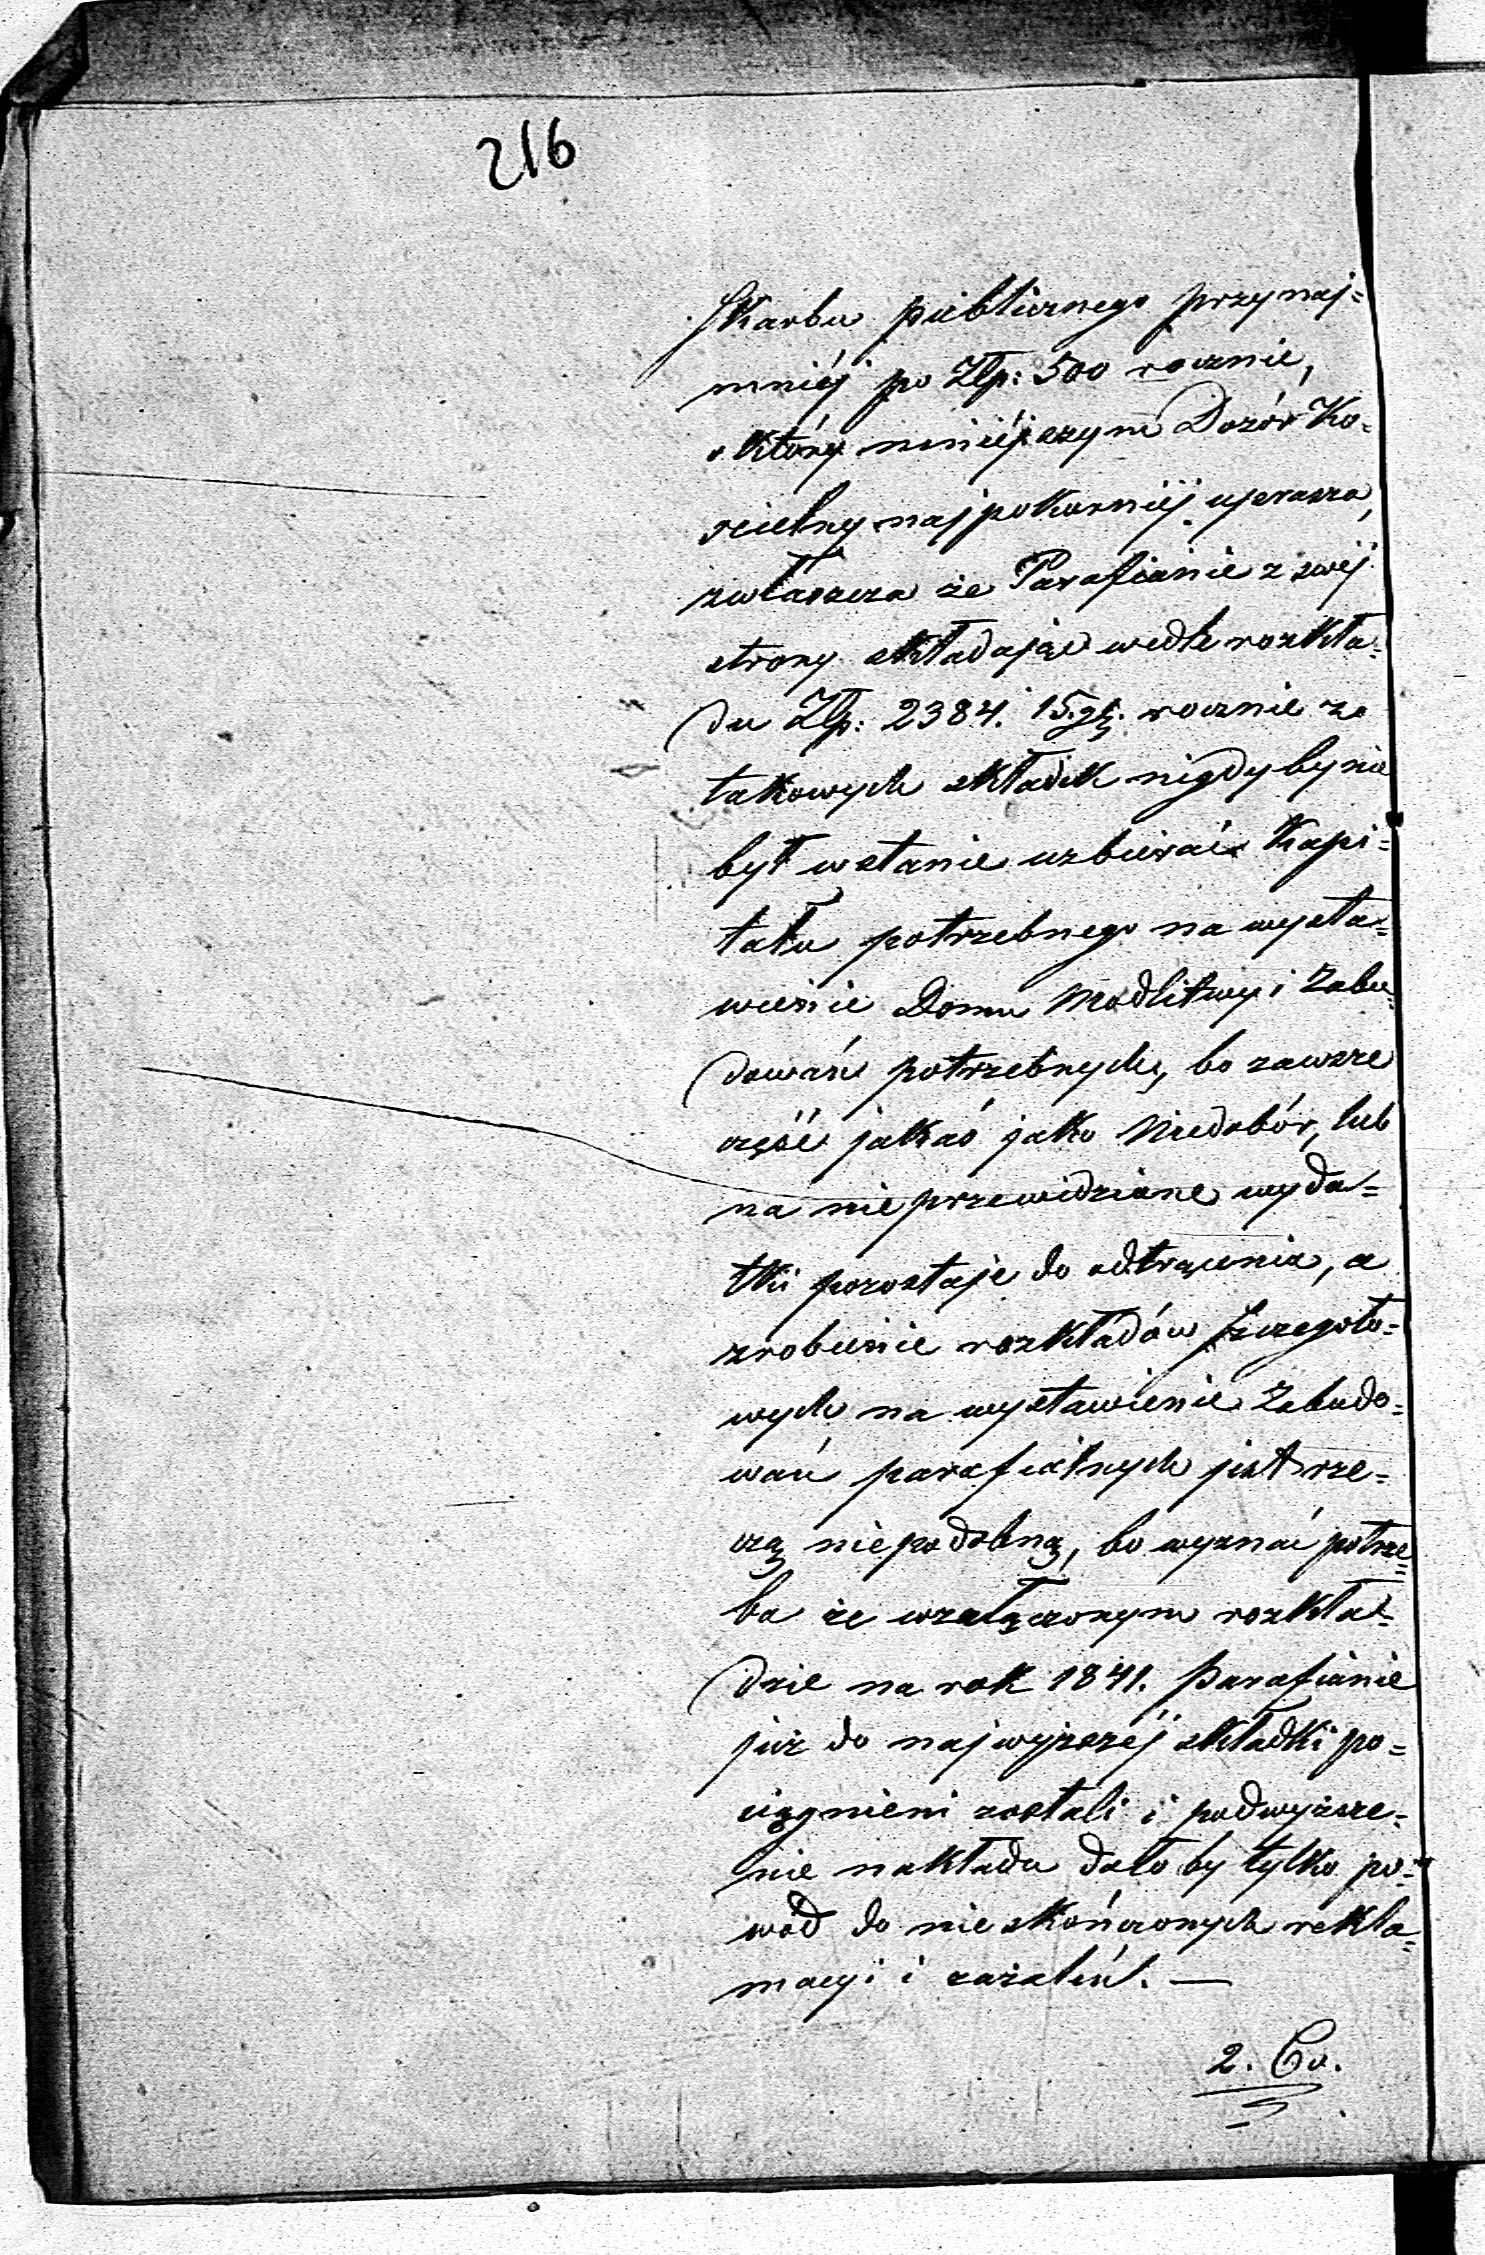 216
Skarbu publicznego przynaj=
mniéj po Złp: 500 rocznie,
o który niniéjszym Dozór Ko=
ścielny najpokorniéj uprasza,
zwłaszcza że Parafianie z swéj
strony składając wedle rozkła=
du Złp: 2384. 15. gr. rocznie ze
takowych składek nigdy by nie
był wstanie uzbierać Kapi=
tału potrzebnego na wysta=
wienie Domu Modlitwy i Zabu=
dowań potrzebnych, bo zawsze
część jakaś jako Niedobór, lub
na nieprzewidziane wyda=
tki pozostaje do odtrącenia, a
zrobienie rozkładów szczegóło=
wych na wystawienie Zabudo=
wań parafialnych jest rze=
czą niepodobną, bo wyznać potrze=
ba że wzałączonym rozkła=
dzie na rok 1841. Parafianie
już do najwyższéj składki po=
ciągnieni zostali i podwyższe=
nie nakładu dało by tylko po=
wód do nieskończonych rekla=
macyi i zażaleń. —
2. Co.